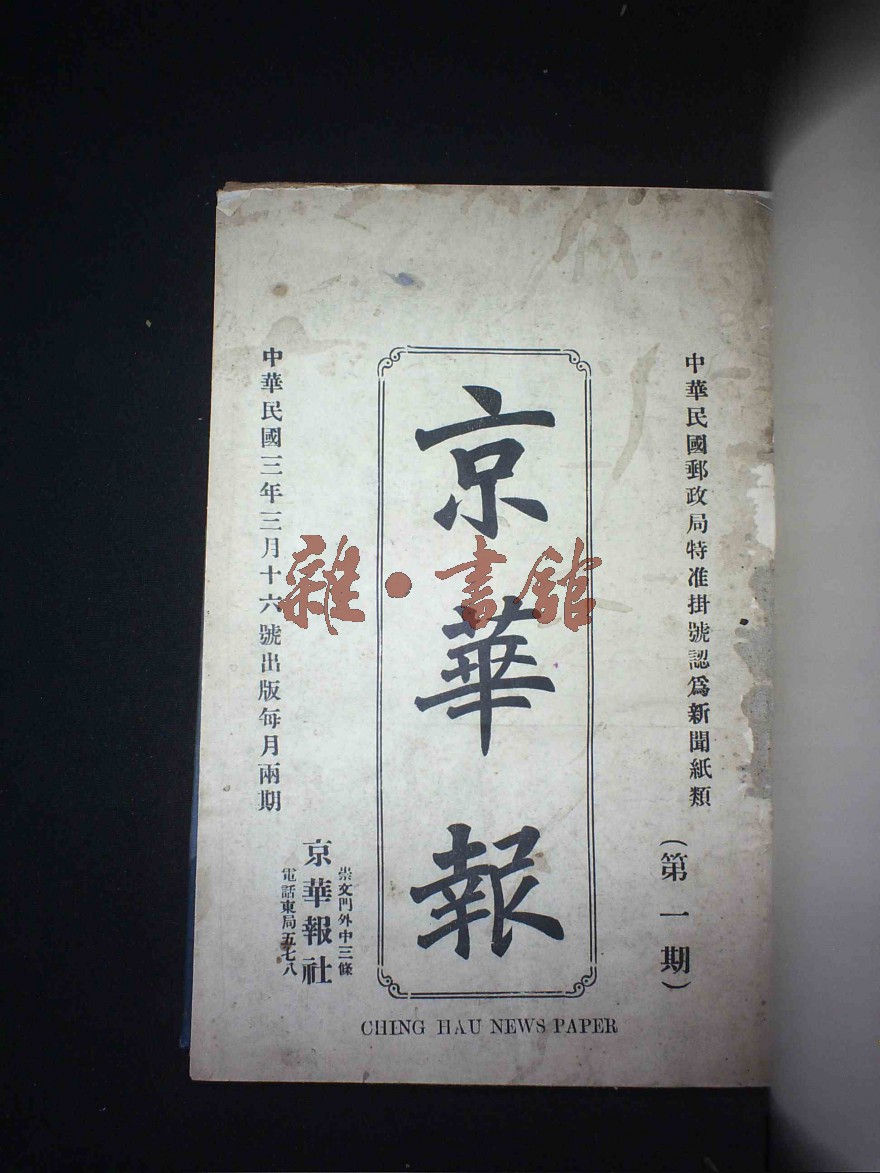 中華民國郵政局特准掛號認爲新聞紙類
(第一期)
京華報
中華民國三年三月十六號出版每月兩期
崇文門外中三條
京華報社
電話東局五七八
CHING HAU NEWS PAPER
雜·書館